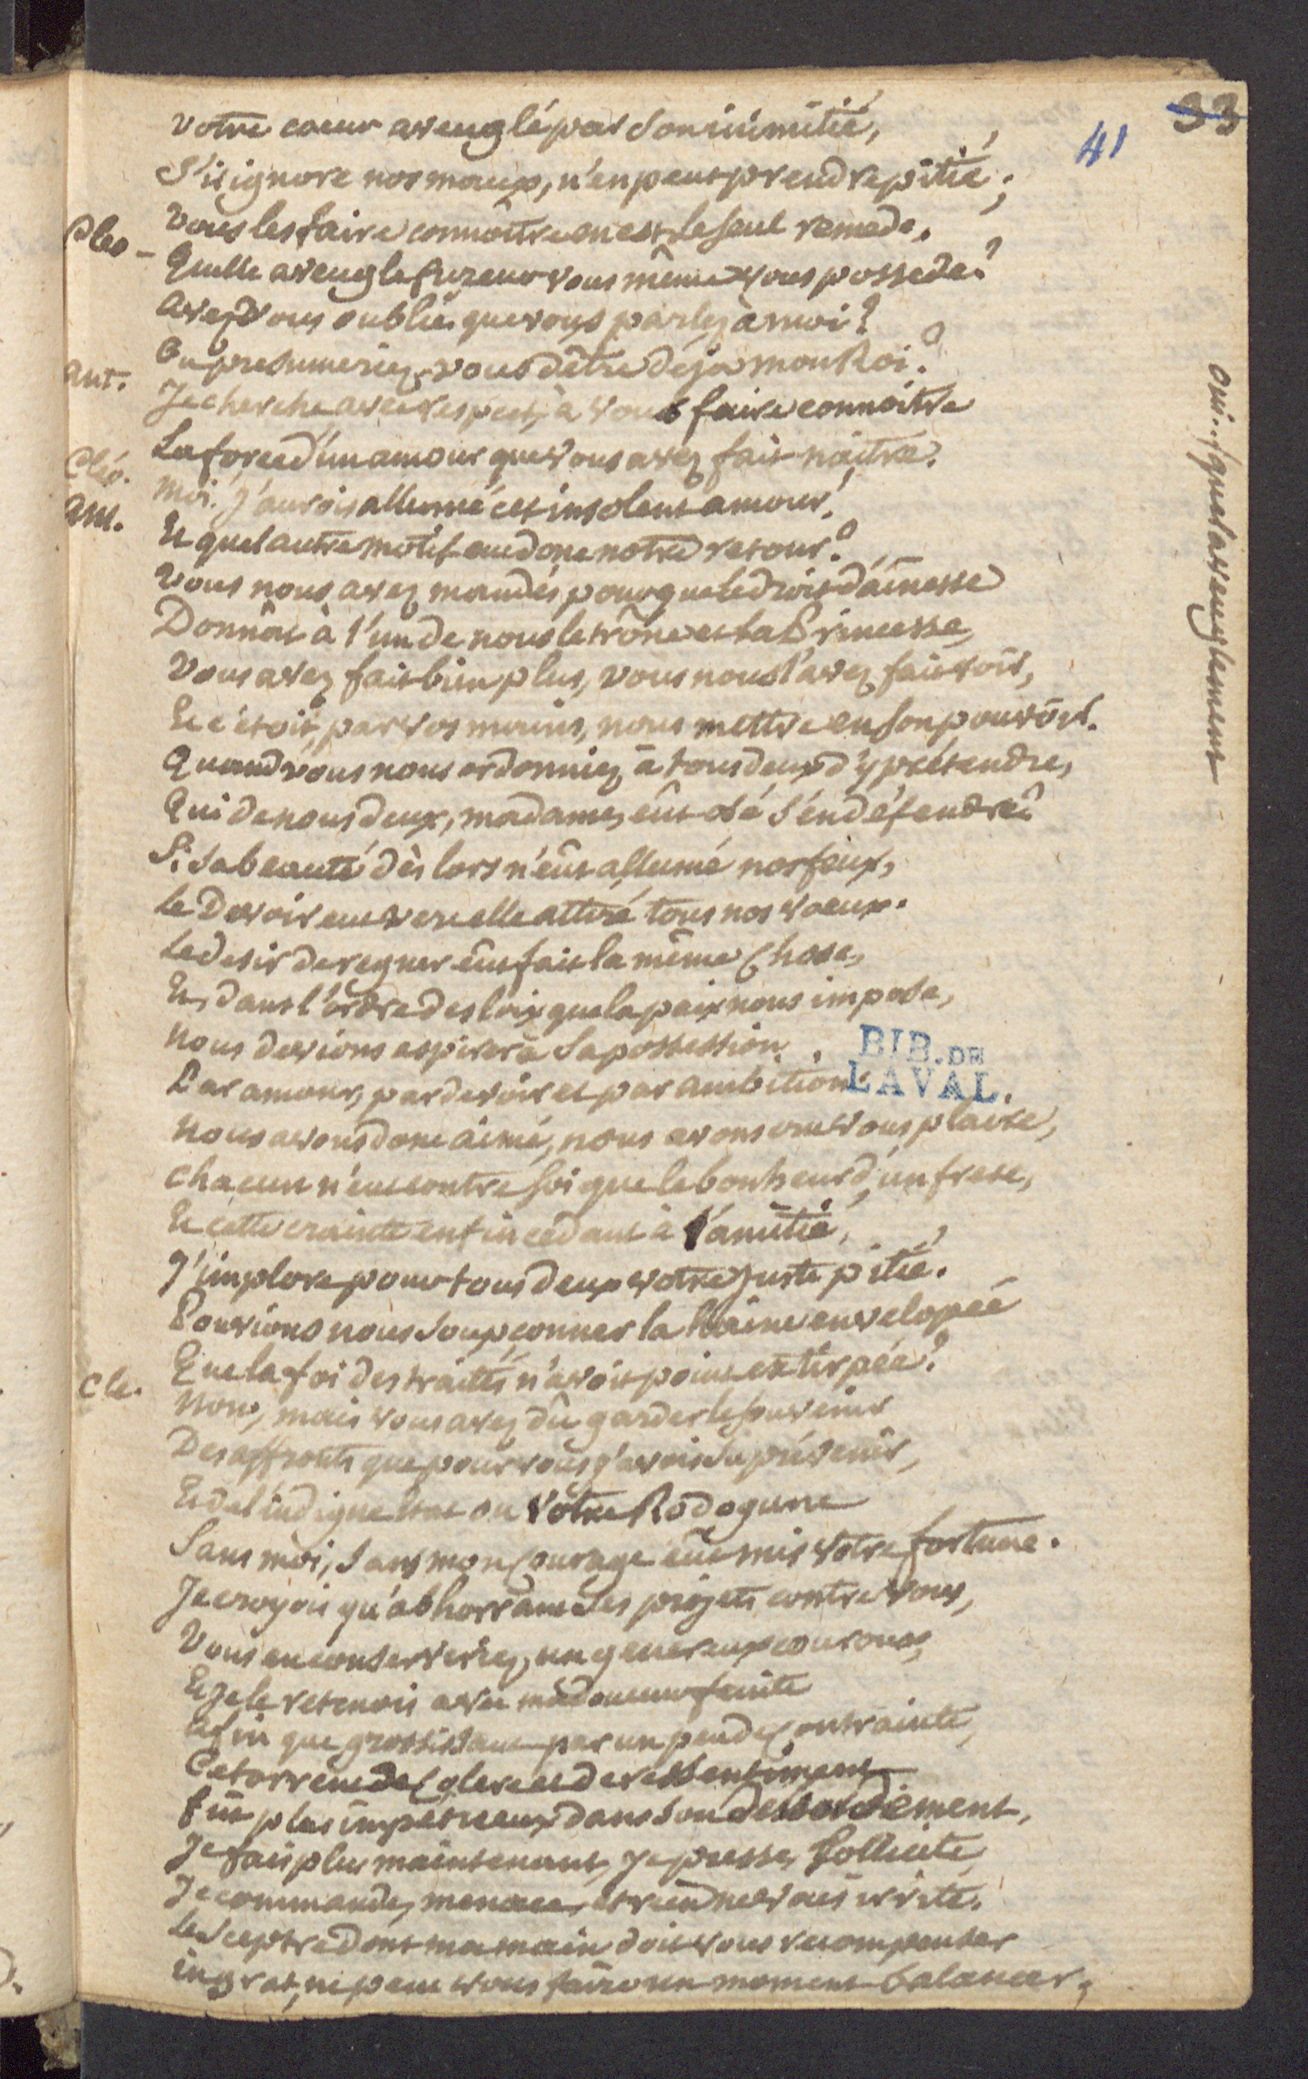 33
41
votre coeur aveuglé par son inimitié,
S'il ignore nos maux, n'en peut prendre pitié;
vous les faire connôitre en est le seul remede.
Cleo - Quelle aveugle fureur vous même vous possede?
avez vous oublié que vous parlez à moi?
Ou presumeriez-vous d'être déja mon Roi?
ant. Je cherche avec respect, à vous faire connoitre
La force d'un amour que vous avez fait naitre.
Cléo. Moi! J'aurois allumé cet insolent amour!
ant. Et quel autre motif eut donc notre retour?
Vous nous avez mandés pour que le droit d'ainesse
Donnât à l'un de nous le trône et la Princesse,
Vous avez fait bien plus, vous nous l'avez fait voir,
Et c'étoit par vos mains, nous mettre en son pouvoir.
Quand vous nous ordonniez à tous deux d'y prétendre,
Qui de nous deux, madame, eût osé s'en défendre?
Si sa beauté dès lors n'eût allumé nos feux,
Le Devoir eut vers elle attiré tous nos voeux.
Le desir de regner eut fait la même Chose,
Et, dans l'ordre des loix que la paix nous impose,
Nous devions aspirer à sa possession
Par amour, par devoir et par ambition.
Nous avons donc aimé, nous avons cru vous plaire,
Chacun n'eut contre soi que le bonheur d'un frere,
Et cette crainte enfin cedant à l'amitié,
J'implore pour tous deux votre juste pitié.
Pouvions nous soupçonner la haine envelopée
Que la foi des traités n'avoit point extirpée?
Cle. Non, mais vous avez dû garder le souvenir
Des affronts que pour vous j'avois su prévenir,
Et de l'indigne état ou votre Rodogune
Sans moi, sans mon Courage eût mis votre fortune.
Je croyois qu'abhorrant ses projets contre vous,
Vous en conserveriez, un genereux couroux,
Et je le retenois avec ma douceur feinte
Afin que grossissant par un peu de Contrainte,
Ce torrent de Colere et de ressentiment
Fut plus impetueux dans son debordement,
Je fais plus maintenant, je presse, sollicite,
Je commande, menace, et rien ne vous irrite.
Le sceptre dont ma main doit vous recompenser
ingrat, ne peut vous faire un moment balancer,
oui.. quel aveuglement
BIB. DE
LAVAL.